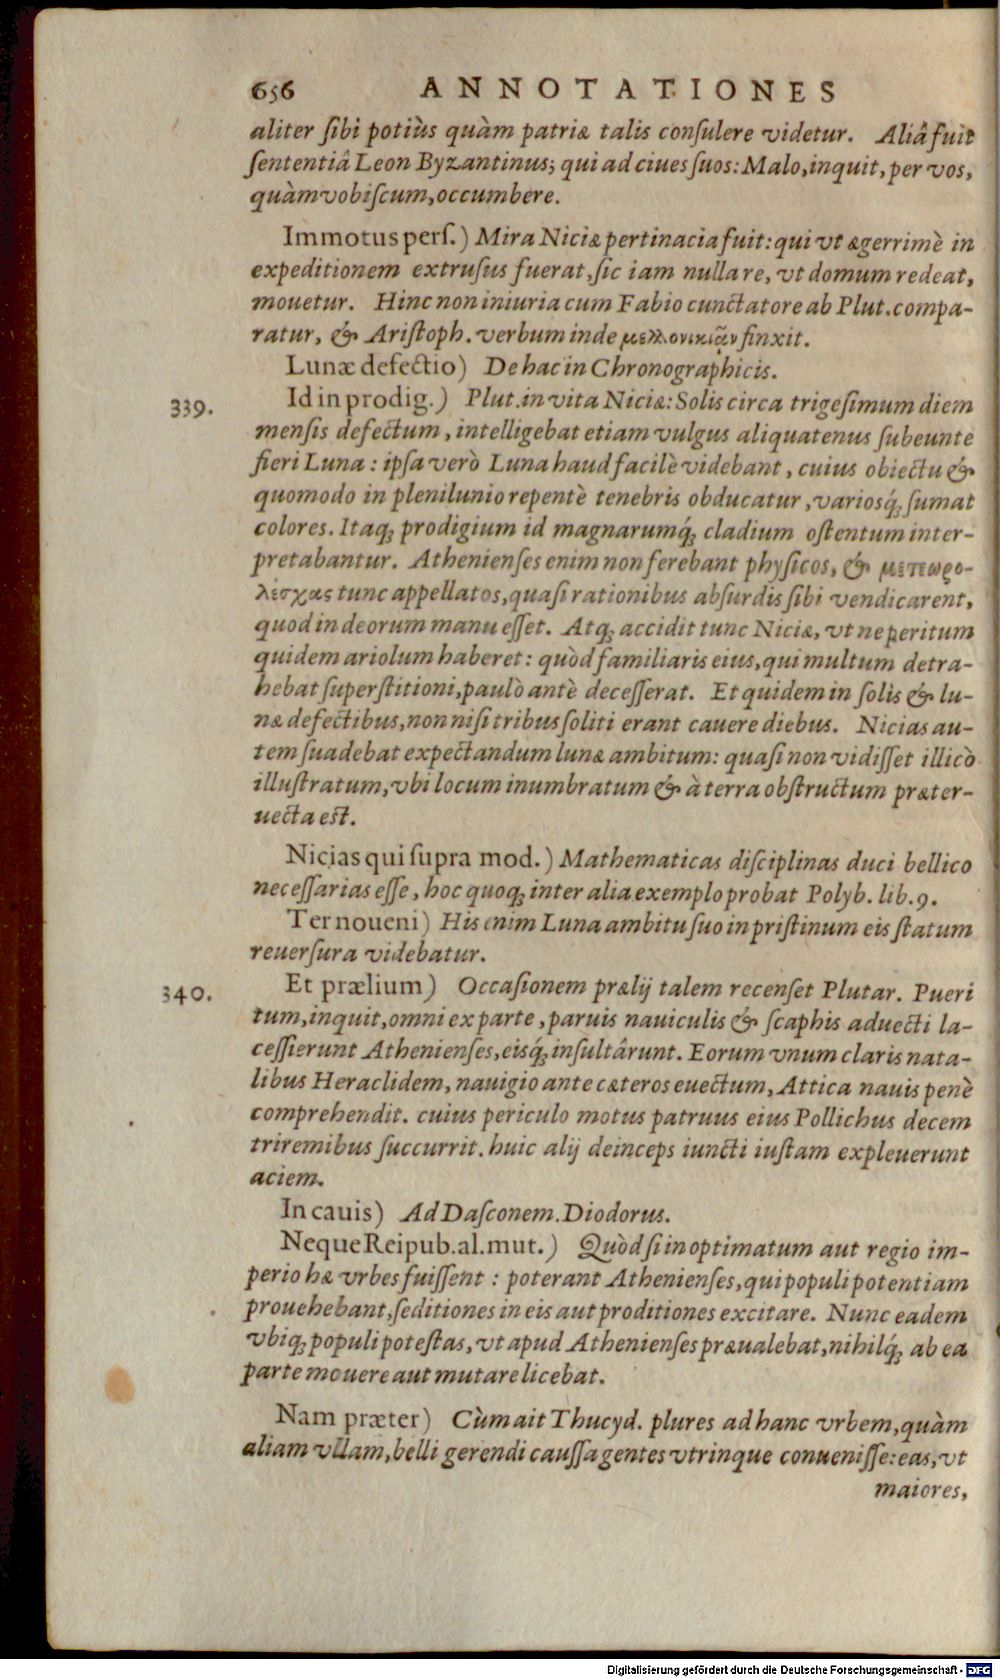 656 ANNOTATIONES
aliter ſibi potiùs quàm patriæ talis conſulere videtur. Aliâ fuit
ſententiâ Leon Byzantinus; qui ad ciues ſuos: Malo, inquit, per vos,
quàm vobiſcum, occumbere.
Immotus perſ.) Mira Niciæ pertinacia fuit: qui vt ægerrimè in
expeditionem extruſus fuerat, ſic iam nulla re, vt domum redeat,
mouetur. Hinc non iniuria cum Fabio cunctatore ab Plut. compa-
ratur, & Ariſtoph. verbum inde μελλονικιᾷν finxit.
Lunæ defectio) De hac in Chronographicis.
339. Id in prodig.) Plut. in vita Niciæ: Solis circa trigeſimum diem
menſis defectum, intelligebat etiam vulgus aliquatenus ſubeunte
fieri Luna: ipſa verò Luna haud facilè videbant, cuius obiectu &
quomodo in plenilunio repentè tenebris obducatur, variosq́ꝫ ſumat
colores. Itaqꝫ prodigium id magnarumq́ꝫ cladium oſtentum inter-
pretabantur. Athenienſes enim non ferebant phyſicos, & μετεωρο-
λέσχας tunc appellatos, quaſi rationibus abſurdis ſibi vendicarent,
quod in deorum manu eſſet. Atqꝫ accidit tunc Niciæ, vt ne peritum
quidem ariolum haberet: quòd familiaris eius, qui multum detra-
hebat ſuperſtitioni, paulò antè deceſſerat. Et quidem in ſolis & lu-
næ defectibus, non niſi tribus ſoliti erant cauere diebus. Nicias au-
tem ſuadebat expectandum lunæ ambitum: quaſi non vidiſſet illicò
illuſtratum, vbi locum inumbratum & à terra obſtructum præter-
uecta eſt.
Nicias qui ſupra mod.) Mathematicas diſciplinas duci bellico
neceſſarias eſſe, hoc quoqꝫ inter alia exemplo probat Polyb. lib. 9.
Ter noueni) His enim Luna ambitu ſuo in priſtinum eis ſtatum
reuerſura videbatur.
340. Et prælium) Occaſionem prælij talem recenſet Plutar. Pueri
tum, inquit, omni ex parte, paruis nauiculis & ſcaphis aduecti la-
ceſſierunt Athenienſes, eisq́ꝫ inſultârunt. Eorum vnum claris nata-
libus Heraclidem, nauigio ante cæteros euectum, Attica nauis penè
comprehendit. cuius periculo motus patruus eius Pollichus decem
triremibus ſuccurrit. huic alij deinceps iuncti iuſtam expleuerunt
aciem.
In cauis) Ad Daſconem. Diodorus.
Neque Reipub. al. mut.) Quòd ſi in optimatum aut regio im-
perio hæ vrbes fuiſſent: poterant Athenienſes, qui populi potentiam
prouehebant, ſeditiones in eis aut proditiones excitare. Nunc eadem
vbiqꝫ populi poteſtas, vt apud Athenienſes præualebat, nihilq́ꝫ ab ea
parte mouere aut mutare licebat.
Nam præter) Cùm ait Thucyd. plures ad hanc vrbem, quàm
aliam vllam, belli gerendi cauſſa gentes vtrinque conueniſſe: eas, vt
maiores,
Digitalisierung gefördert durch die Deutsche Forschungsgemeinschaft - DFG